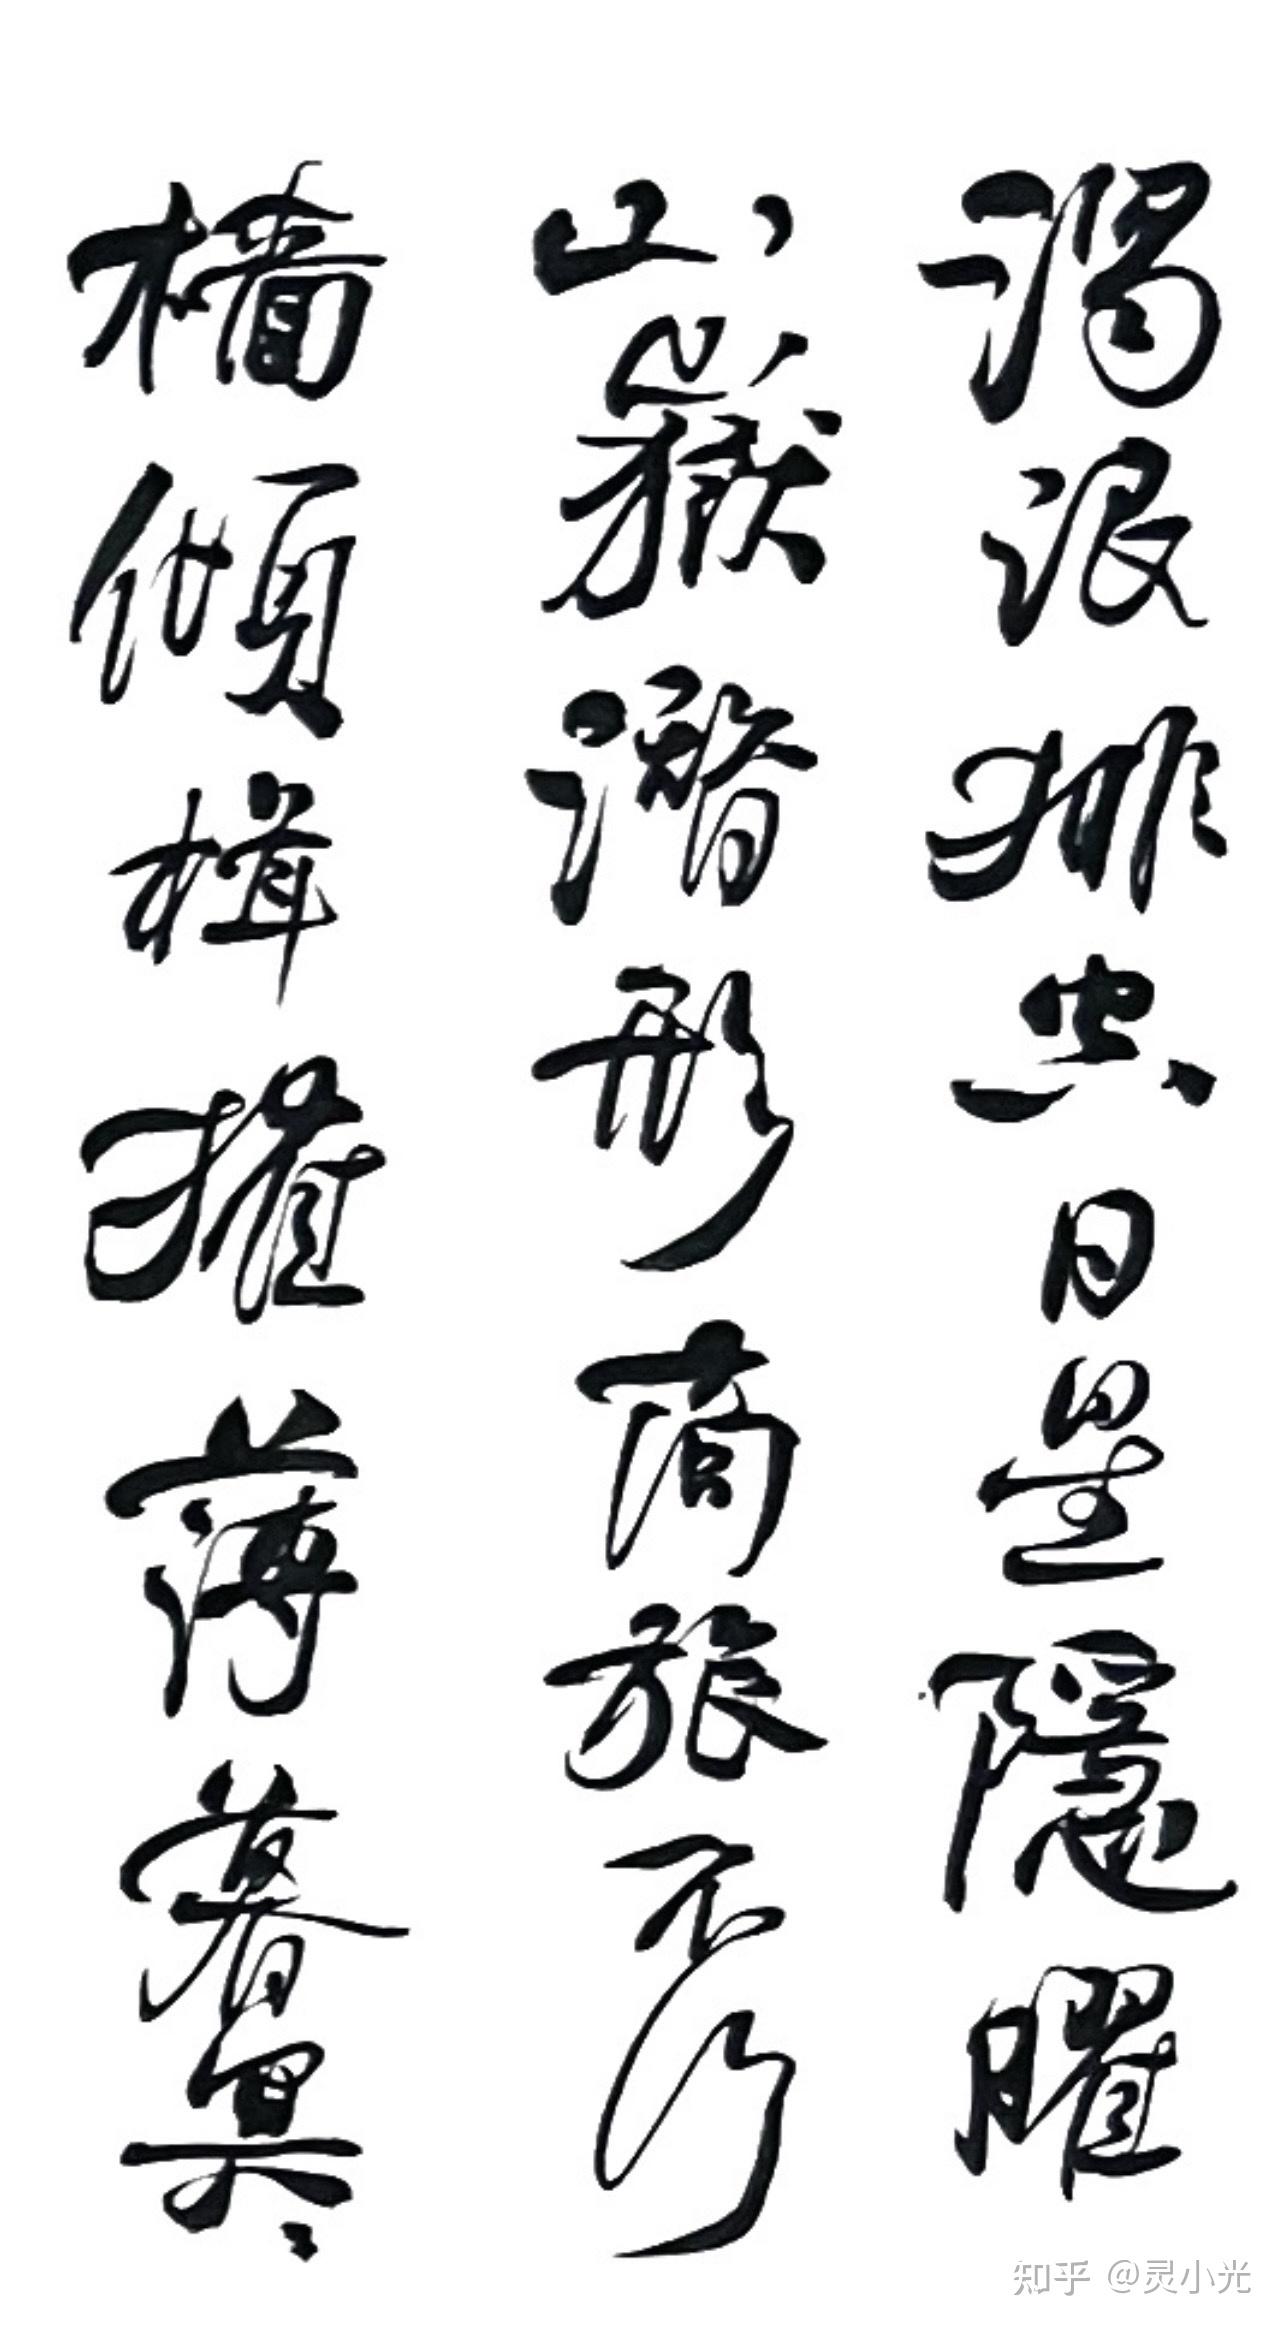 濁浪排空日星隱曜
山嶽潛形商旅不行
檣傾楫摧薄暮冥々
知乎 @灵小光